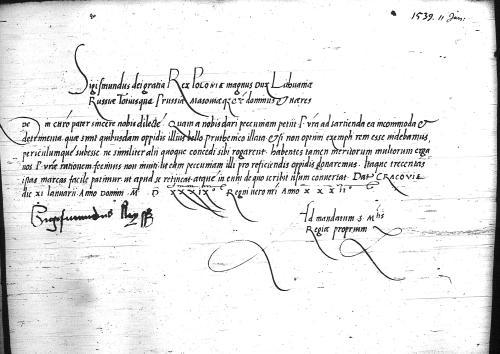 1539. 11 Jan:
Sigismundus dei gratia REX POLONIE magnus DUX Lithuanie
Russie Totiusque Prussie Masovie etc dominus et heres
R̅de In chr̅o pater sincere nobis dilecte Quam a nobis dari pecuniam petiit P. vr̅a ad sartienda ea incommoda et
detrimenta que sunt quibusdam oppidis illius bello pruthenico illata etsi non optimi exempli rem esse videbamus,
periculumque subesse ne similiter alii quoque concedi sibi rogarent habentes tamen meritorum multorum erga
nos P. vr̅e rationem fecimus non inviti ut eam pecuniam illi pro reficiendis oppidis donaremus. Itaque trecentas
ipsas marcas facile patimur ut apud se retineat atque in eum de quo scribit usum convertat Dat CRACOVIE
die XI Ianuarii Anno Domini M D XXXIX Regni vero nri Anno XXXII
Sigismundus Rex
Ad mandatum S. Mtis
Regie proprium